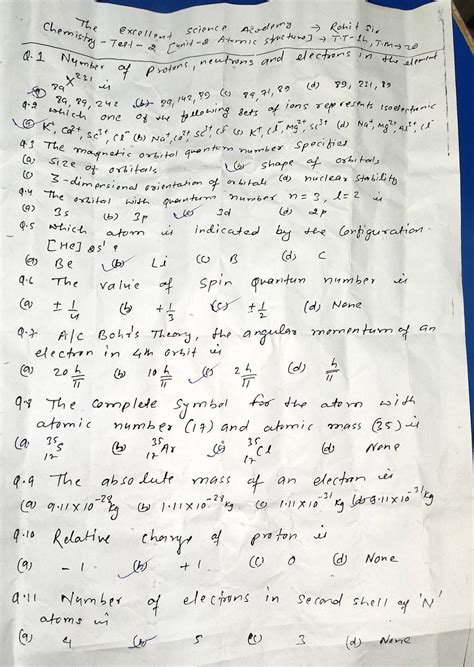 The excellent science Academy → Rohit Sir
Chemistry - Test - 2 [unit-2 Atomic structure] → T.T - 1h, T.M → 20
Q.1 Number of Protons, neutrons and electrons in the element
89 X 231 is
(a) 89, 89, 242 (b) 89, 142, 89 (c) 89, 71, 89 (d) 89, 231, 89
Q.2 Which one of the following sets of ions represents isoelectronic
(a) K+, Ca2+, Sc3+, Cl- (b) Na+, Ca2+, Sc3+, Cl- (c) K+, Cl-, Mg2+, Sc3+ (d) Na+, Mg2+, Al3+, Cl-
Q.3 The magnetic orbital quantum number specifies
(a) size of orbitals (b) shape of orbitals
(c) 3-dimensional orientation of orbitals (d) nuclear stability
Q.4 The orbital with quantum number n = 3, l = 2 is
(a) 3s (b) 3p (c) 3d (d) 2p
Q.5 which atom is indicated by the configuration
[He] 2s1 ?
(a) Be (b) Li (c) B (d) C
Q.6 The value of spin quantun number is
(a) ± 1/4 (b) + 1/3 (c) ± 1/2 (d) None
Q.7 A/C Bohr's Theory, the angular momentum of an
electron in 4th orbit is
(a) 20 h/π (b) 10 h/π (c) 2 h/π (d) h/π
Q.8 The complete symbol for the atom with
atomic number (17) and atomic mass (35) is
(a) 35 17 S (b) 35 17 Ar (c) 35 17 Cl (d) None
Q.9 The absolute mass of an electron is
(a) 9.11×10-28 kg (b) 1.11×10-28 kg (c) 1.11×10-31 kg (d) 9.11×10-31 kg
Q.10 Relative charge of proton is
(a) -1 (b) +1 (c) 0 (d) None
Q.11 Number of electrons in second shell of 'N'
atoms is
(a) 4 (b) 5 (c) 3 (d) None